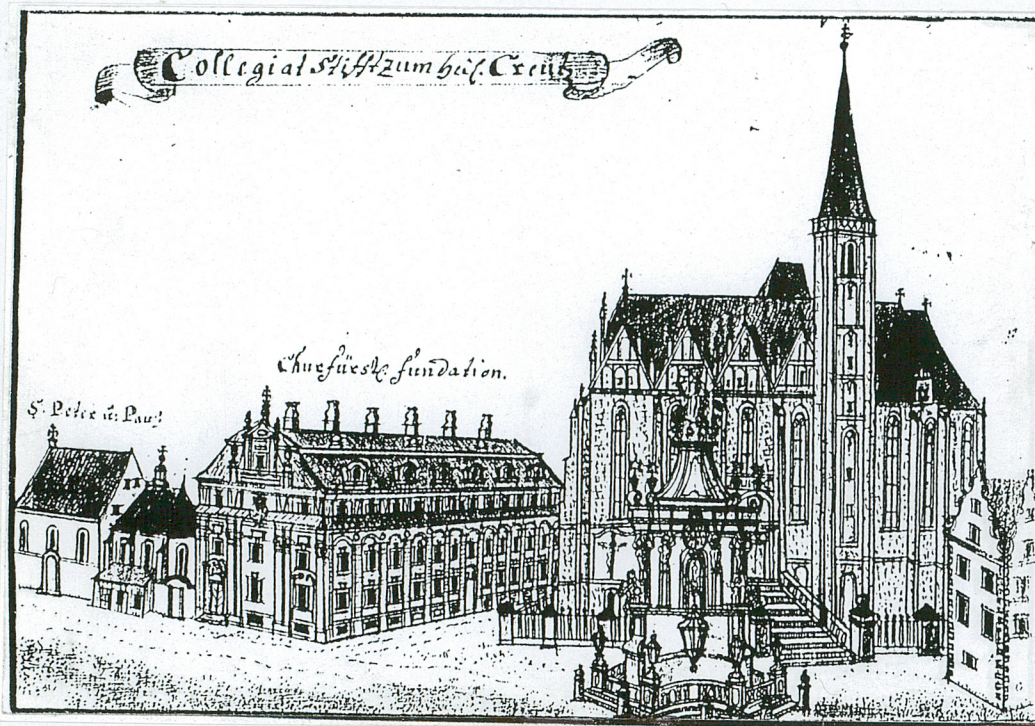 Collegiat Stifft zum heil. Creutz
Churfürstl. fundation.
S. Peter u. Paul